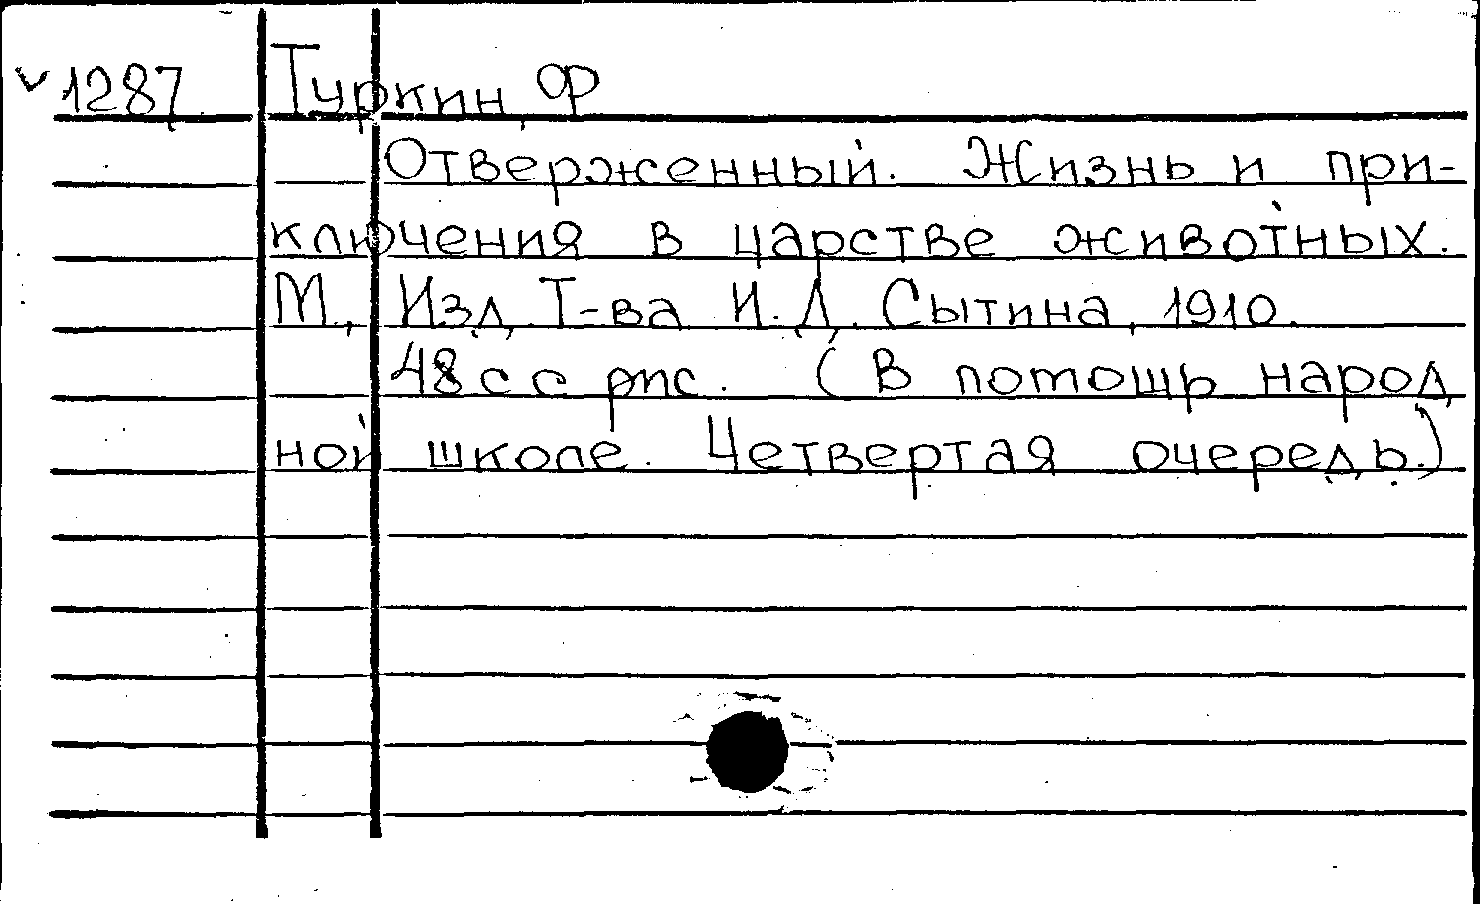 √1287 Туркин, Ф
Отверженный. Жизнь и при-
ключения в царстве животных.
М., Изд. Т-ва И. Д. Сытина, 1910.
48 с с рис. (В помощь народ
ной школе. Четвертая очередь.)